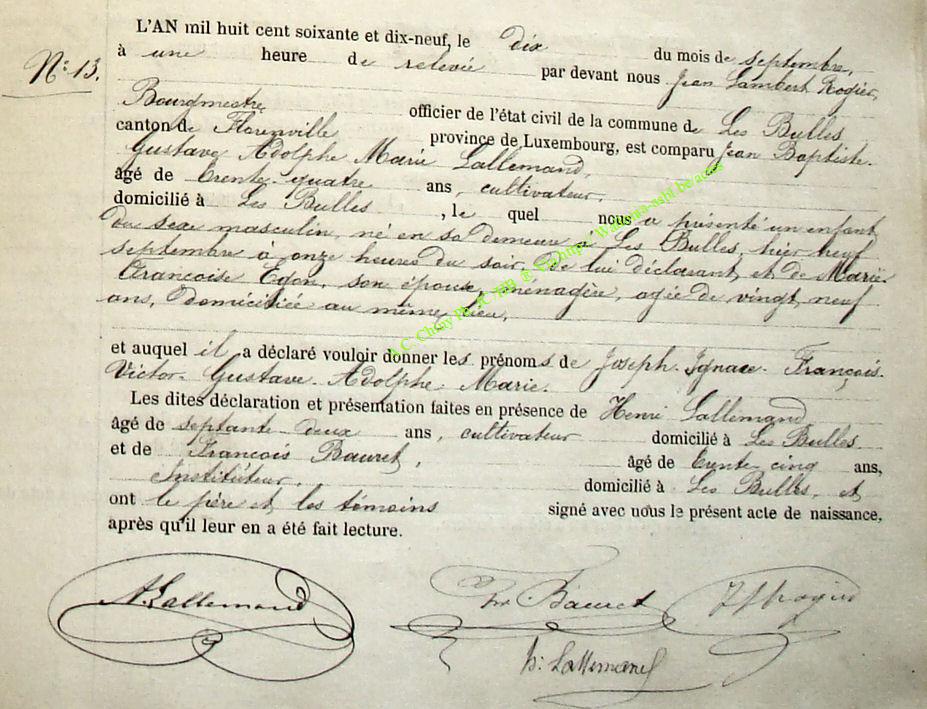 L'AN mil huit cent soixante et dix-neuf, le dix du mois de septembre,
N.º 13.
à une heure de relevée par devant nous Jean Lambert Rogier,
Bourgmestre officier de l'état civil de la commune de Les Bulles
canton de Florenville, province de Luxembourg, est comparu Jean Baptiste.
Gustave Adolphe Marie Lallemand,
âgé de trente-quatre ans, cultivateur.
domicilié à Les Bulles, le quel nous a présenté un enfant
du sexe masculin, né en sa demeure à Les Bulles, hier neuf
septembre à onze heures du soir, de lui déclarant, et de Marie
Françoise Egon, son épouse, ménagère, agée de vingt neuf
ans, domiciliée au même lieu,
et auquel il a déclaré vouloir donner les prénoms de Joseph. Ignace. François.
Victor. Gustave. Adolphe. Marie.
Les dites déclaration et présentation faites en présence de Henri Lallemand
âgé de septante deux ans, cultivateur domicilié à Les Bulles
et de François Bauret, âgé de trente cinq ans,
Instituteur, domicilié à Les Bulles, et
ont le père et les témoins signé avec nous le présent acte de naissance,
après qu'il leur en a été fait lecture.
A. Lallemand
Fr. Bauret
h: Lallemand